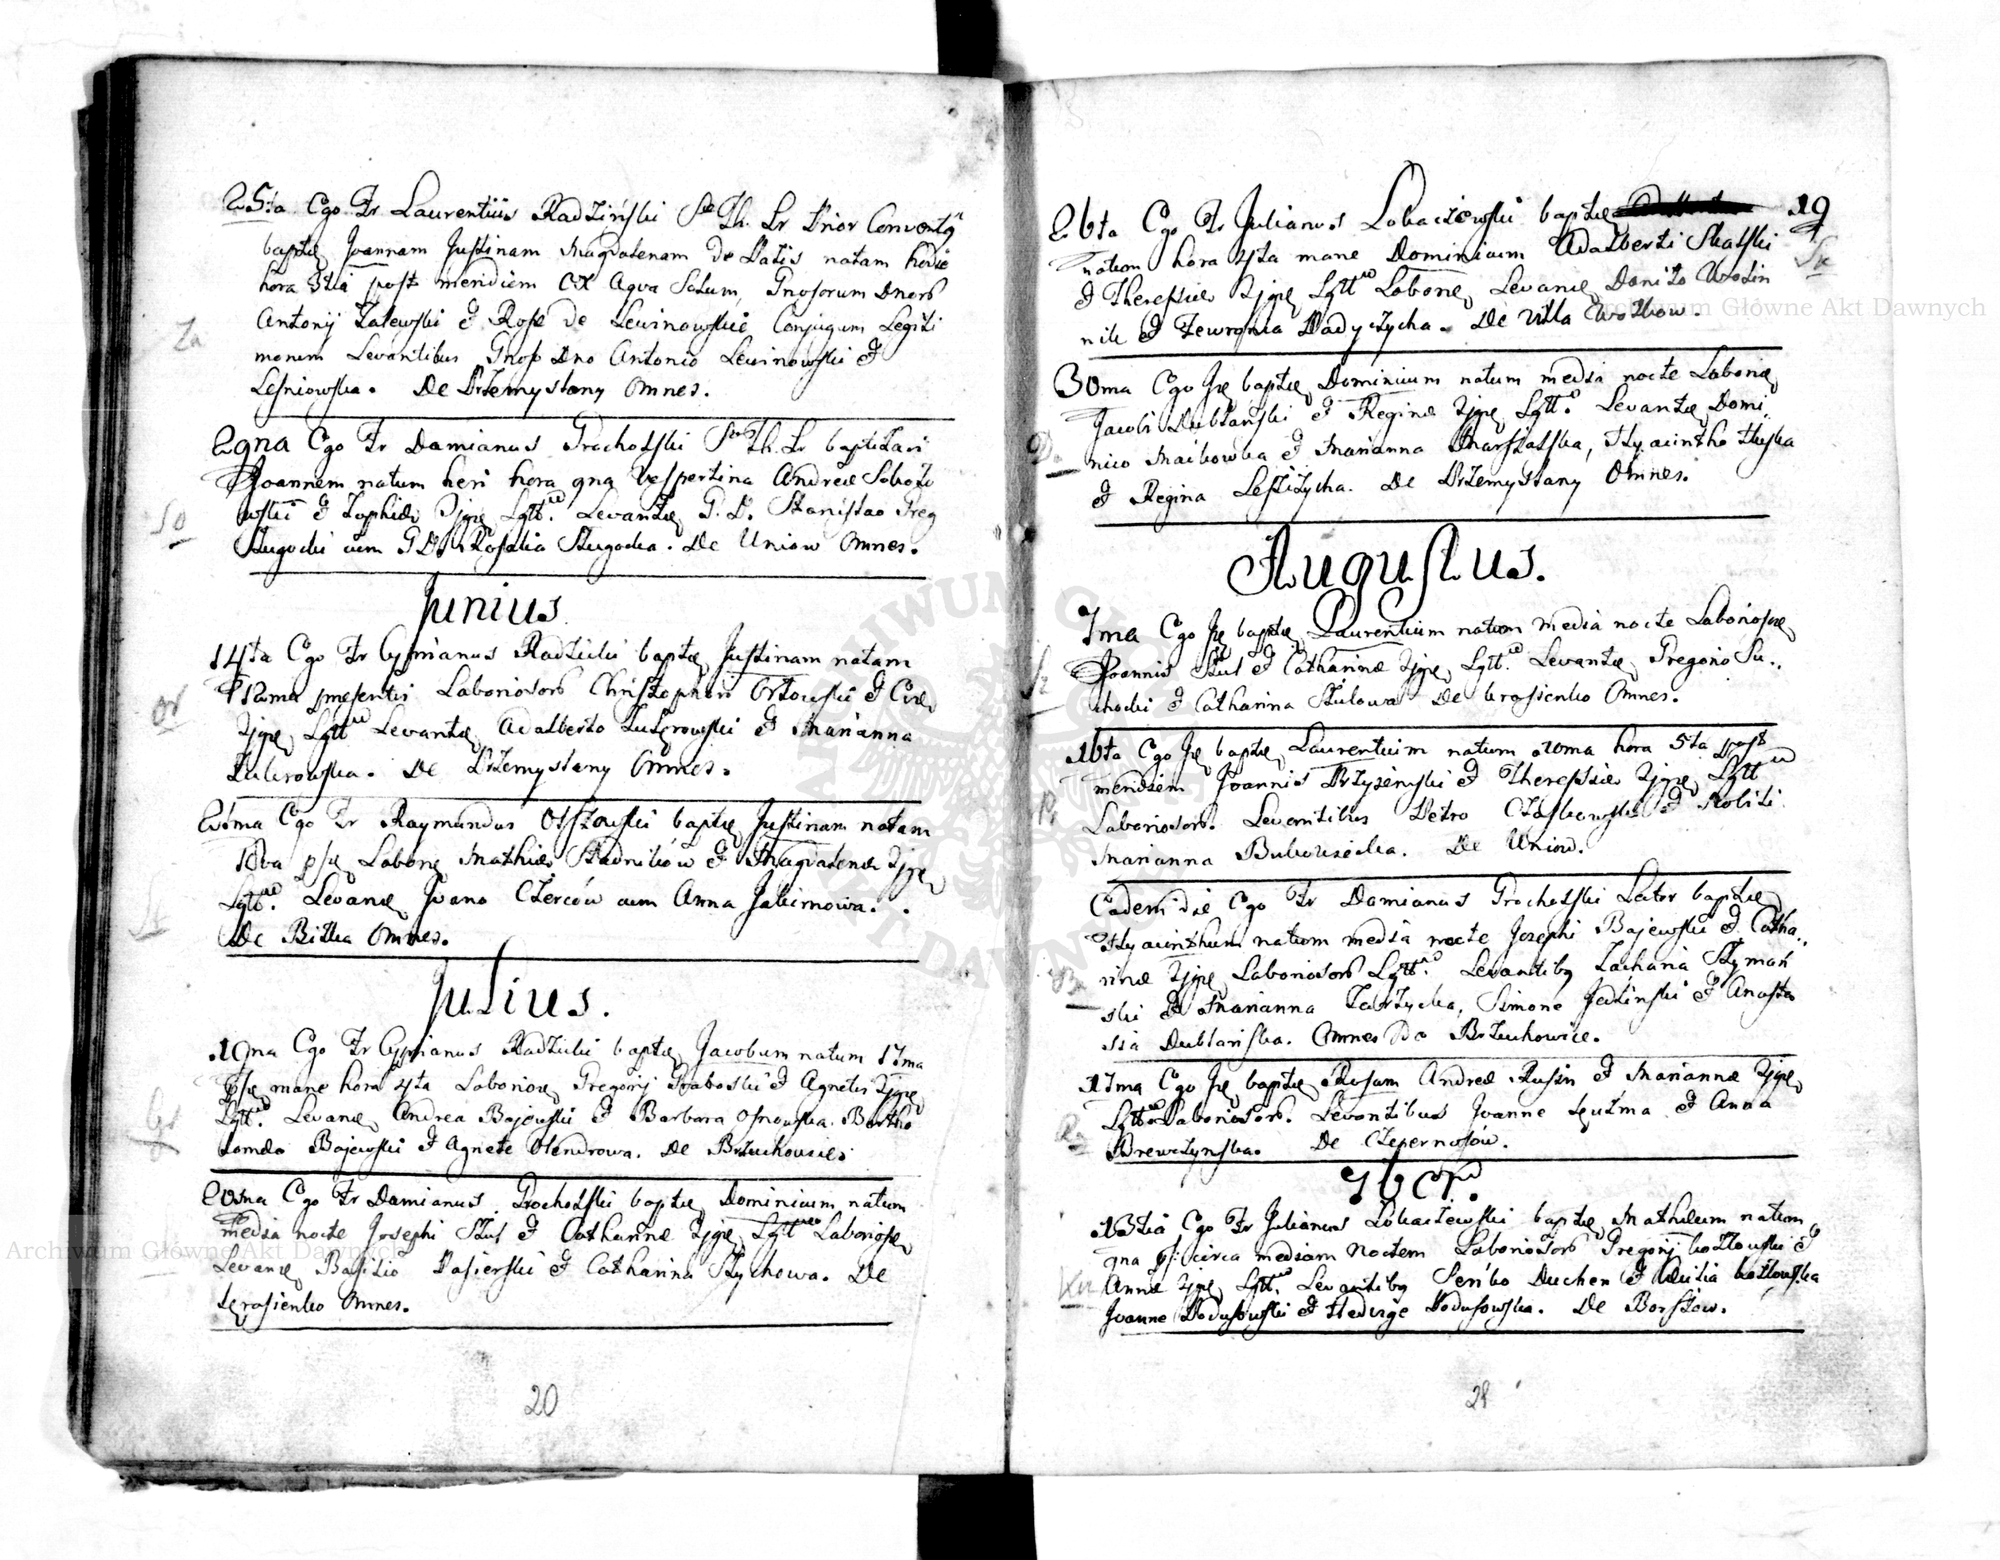 25ta Ego Fr Laurentius Radziński Sae Th. Lr Prior Conventq
baptę Joannam Justinam Magdalenam de Patis natam hodie
hora 3tia post meridiem ex Aqva Sctum, Gnosorum Dnorũ
Antonij Zalewski & Rosę de Lewinowskie Conjugum Legiti
morum Levantibus Gnoso Dno Antonio Lewinowski &
Leśniowska. De Przemyslany Omnes.
Za
29na Ego Fr Damianus Grocholski Sae Th. Lr baptizavi
Joannem natum heri hora 9na Vespertina Andreæ Sobole
wski & Sophiæ Cjgę Lgttũ. Levantę G. D. Stanislao Greg
Slugocki cum GD. Rosalia Slugocka. De Uniow Omnes.
So
Junius.
14ta Ego Fr Cyprianus Radzicki baptę Justinam natam
12ma præsentis Laboriosorũ Christophori Orlowski & Evæ
Cjgę Lgttũ Levantę Adalberto Zulerowski & Marianna
Zulerowska. De Przemyslany Omnes.
Or
Ego Fr Raymundus Ostrowski baptę Justinam natam
18va psę Laborę Mathiæ Stadnikow & Magdalenæ Cjgę
Lgttũ. Levanę Jvano Czerców cum Anna Jakimowa.
De Bilka Omnes.
St
Julius.
19na Ego Fr Cyprianus Radzicki baptę Jacobum natum 17ma
psę mane hora 4ta Laborioę Gregorij Graboski & Agnetis Cjgę
Lgttũ. Levanę Andrea Bajewski & Barbara Osnowska. Bartho
lomeo Bajewski & Agnete Olendrowa. De Brzuchowice
Gr
20ma Ego Fr Damianus Grocholski baptę Dominicum natum
media nocte Josephi Szul & Catharinæ Cjgę Lgttũ Laboriosę
Levanę Basilio Pasierski & Catharina Stychowa. De
Krosienko Omnes.
20
19
26ta Ego Fr Julianus Lobaczewski baptę
natum hora 4ta mane Dominicum Adalberti Skalski
& Theresiæ Cjgę Lgttũ Laborię Levanę Danilo Wolin
nik & Fewronia Dadyczycha. De Villa Wolkow.
Sk
30ma Ego Ję baptę Dominicum natum media nocte Laborię
Jacobi Dublański & Reginæ Cjgę Lgttũ. Levantę Domi,
nico Maikowka & Marianna Marszalska, Hyacintho Huska
& Regina Leszczycha. De Przemyslany Omnes.
Augustus.
7ma Ego Ję baptę Laurentium natum media nocte Laboriosę
Joannis Szul & Catharinæ Cjgę Lgttũ. Levantę Gregorio Su,,
chocki & Catharina Szulowa De Krosienko Omnes.
Sz
16ta Ego Ję baptę Laurentium natum 10ma hora 5ta post
meridiem Joannis Przyszeński & Theresiæ Cjgę Lgttũ
Laboriosorũ. Levantibus Petro Czaskowski &
Marianna Bukowiecka. De Uniow.
Eadem die Ego Fr Damianus Grocholski Lctor baptę
Hyacinthum natum media nocte Josephi Bajewski & Catha,,
rinæ Cjgę Laboriosorũ Lgttũ. Levantibq Zacharia Szymań
ski & Marianna Zabrzycka, Simone Jedliński & Anasta
sia Dublańska. Omnes De Brzuchowice.
Ba
17ma Ego Ję baptę Rosam Andreæ Rusin & Mariannæ Cjgę
Lgttũ Laboriosorũ. Levantibus Joanne Kuźma & Anna
Brewczynska. De Czepernosow.
7bris
13tia Ego Fr Julianus Lobaczewski baptę Mathæum natum
9na circa mediam Noctem Laboriosorũ Gregorij Kozlowski &
Annæ Cjgę Lgttũ. Levantibq Seńko Duchen & Kozlowska
Joanne Podusowski & Hedvige Podusowska. De Borszow.
21
Archiwum Główne Akt Dawnych
Archiwum Główne Akt Dawnych
ARCHIWUM GŁÓWNE AKT DAWNYCH